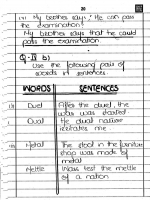 20
(v) My brother says, "He can pass
the examination."
My brother says that he could
pass the examination.
Q-5 b)
Use the following pairs of
words in sentences.
WORDS SENTENCES
(i) Duel After the duel, the
was was started
Dual He dual native
irritates me
Metal The stool in the
shop was made of
metal
Mettle Wars test the mettle
of a nation